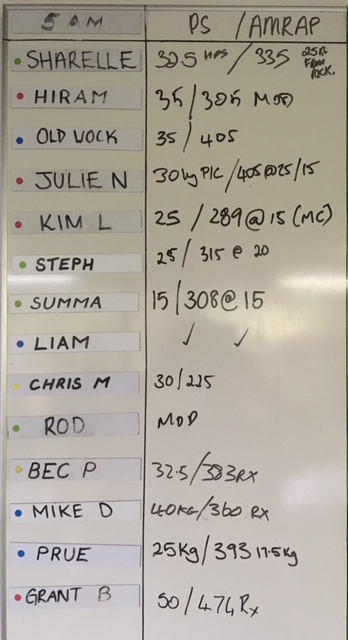 5 AM PS / AMRAP
SHARELLE 32.5 HPS / 335 25R FROM ROCK.
HIRAM 35 / 305 MOD
OLD WOCK 35 / 405
JULIE N 30kg PIC / 405@25/15
KIM L 25 / 289@15 (MC)
STEPH 25 / 315 @ 20
SUMMA 15 | 308@15
LIAM ✓ ✓
CHRIS M 30/225
ROD MOD
BEC P 32.5/383RX
MIKE D 40KG/360 RX
PRUE 25Kg / 393 17.5Kg
GRANT B 50 / 474 Rx